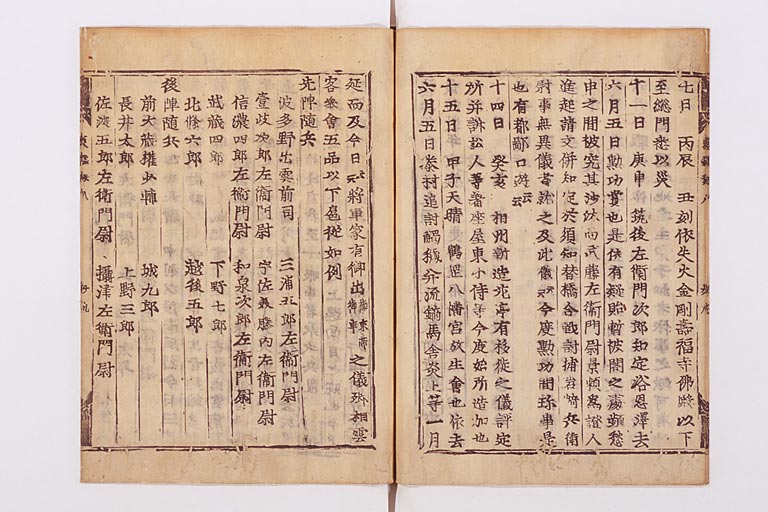 七日 丙辰 丑刻依失火金剛壽福寺佛殿以下
至總門悉以災
十一日 庚申 筑後左衞門次郎知定浴恩澤去
六月五日勳功賞也是依有疑貽暫被閣之處頻愁
申之間被究其沙汰而武藤左衞門尉景頼爲證人
進起請文併知定
射事無異儀者就之及此儀云云今度勳功間珎事是
也有都鄙口遊云云
十四日 癸亥 相州新造花亭有移徙之儀評定
所并訴訟人等着座屋東小侍等今度始所造加也
十五日 甲子天晴 鶴岡八幡宮放生會也依去
六月五日泰村追討觸穢并流鏑馬舍炎上等一月
延而及今日云云將軍家有御出之儀殊相雲
客參會五品以下扈從如例
先陣隨兵
波多野出雲前司 三浦五郎左衞門尉
壹岐次郎左衞門尉 宇佐美藤内左衞門尉
信濃四郎左衞門尉 和泉次郎左衞門尉
武藏四郎 下野七郎
北條六郎 越後五郎
後陣隨兵
前大藏權少輔 城九郎
長井太郎 上野三郎
佐渡五郎左衞門尉 攝津左衞門尉